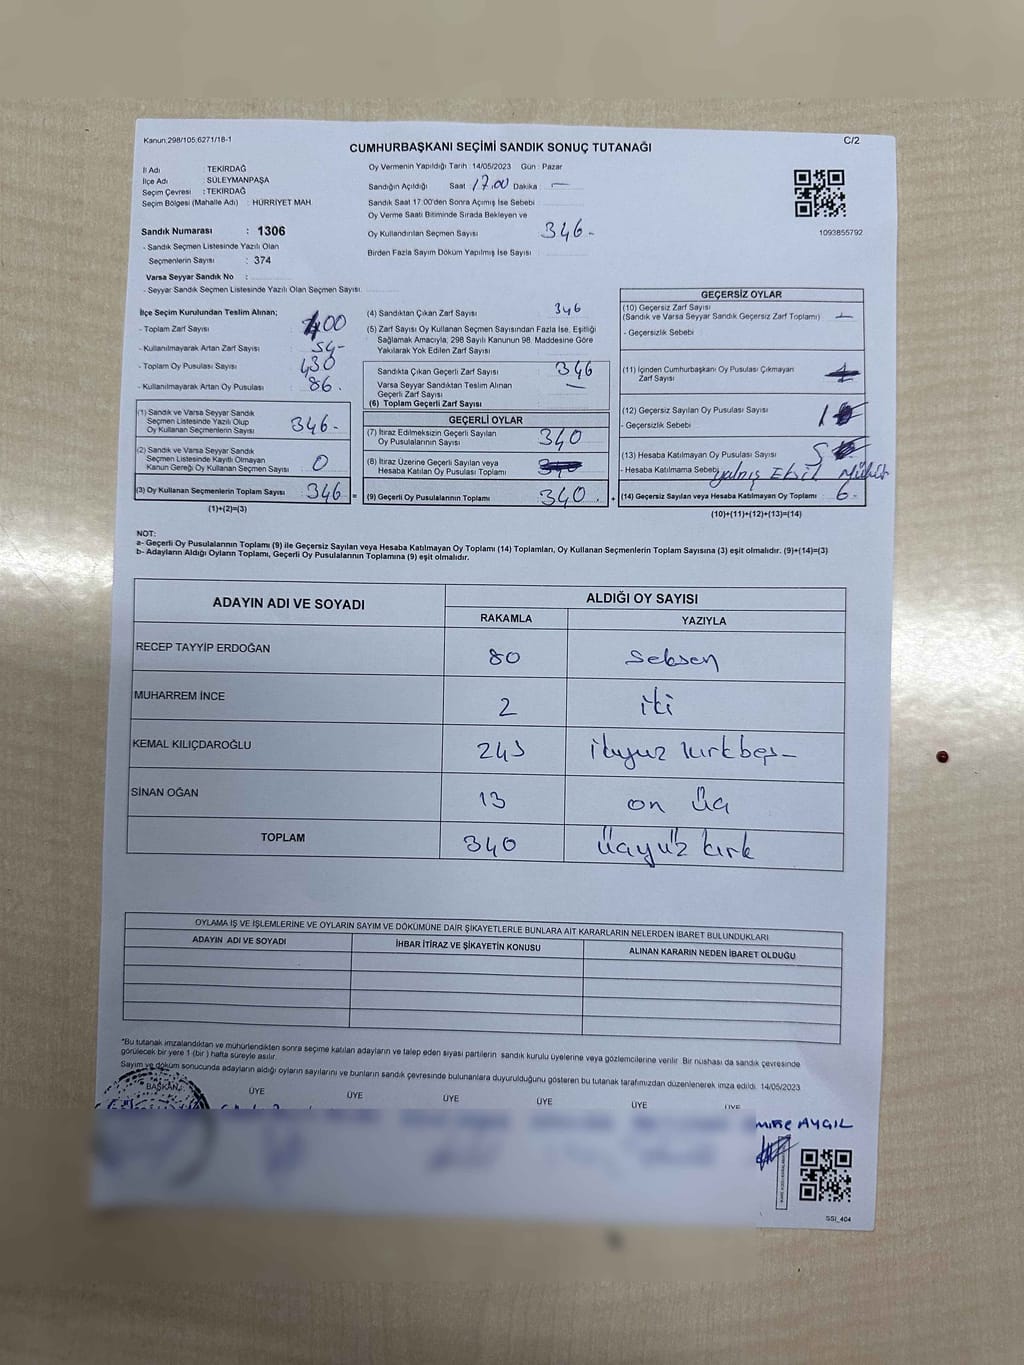 Kanun:298/105;6271/18-1
C/2
CUMHURBAŞKANI SEÇİMİ SANDIK SONUÇ TUTANAĞI
İl Adı : TEKİRDAĞ
İlçe Adı : SÜLEYMANPAŞA
Seçim Çevresi : TEKİRDAĞ
Seçim Bölgesi (Mahalle Adı) : HÜRRİYET MAH
Sandık Numarası : 1306
- Sandık Seçmen Listesinde Yazılı Olan
Seçmenlerin Sayısı : 374
Varsa Seyyar Sandık No :
- Seyyar Sandık Seçmen Listesinde Yazılı Olan Seçmen Sayısı:
Oy Vermenin Yapıldığı Tarih : 14/05/2023 Gün : Pazar
Sandığın Açıldığı Saat 17.00 Dakika : —
Sandık Saat 17:00'den Sonra Açımış İse Sebebi
Oy Verme Saati Bitiminde Sırada Bekleyen ve
Oy Kullandırılan Seçmen Sayısı 346-
Birden Fazla Sayım Döküm Yapılmış İse Sayısı
1093855792
İlçe Seçim Kurulundan Teslim Alınan;
- Toplam Zarf Sayısı : 400
- Kullanılmayarak Artan Zarf Sayısı : 54-
- Toplam Oy Pusulası Sayısı : 430
- Kullanılmayarak Artan Oy Pusulası : 86.
(1) Sandık ve Varsa Seyyar Sandık
Seçmen Listesinde Yazılı Olup
Oy Kullanan Seçmenlerin Sayısı : 346-
(2) Sandık ve Varsa Seyyar Sandık
Seçmen Listesinde Kayıtlı Olmayan
Kanun Gereği Oy Kullanan Seçmen Sayısı : 0
(3) Oy Kullanan Seçmenlerin Toplam Sayısı : 346 =
(1)+(2)=(3)
(4) Sandıktan Çıkan Zarf Sayısı : 346
(5) Zarf Sayısı Oy Kullanan Seçmen Sayısından Fazla İse, Eşitliği
Sağlamak Amacıyla; 298 Sayılı Kanunun 98. Maddesine Göre
Yakılarak Yok Edilen Zarf Sayısı :
Sandıkta Çıkan Geçerli Zarf Sayısı : 346
Varsa Seyyar Sandıktan Teslim Alınan
Geçerli Zarf Sayısı : —
(6) Toplam Geçerli Zarf Sayısı :
GEÇERLİ OYLAR
(7) İtiraz Edilmeksizin Geçerli Sayılan
Oy Pusulalarının Sayısı : 340
(8) İtiraz Üzerine Geçerli Sayılan veya
Hesaba Katılan Oy Pusulası Toplamı :
(9) Geçerli Oy Pusulalarının Toplamı : 340. +
GEÇERSİZ OYLAR
(10) Geçersiz Zarf Sayısı
(Sandık ve Varsa Seyyar Sandık Geçersiz Zarf Toplamı) : —
- Geçersizlik Sebebi :
(11) İçinden Cumhurbaşkanı Oy Pusulası Çıkmayan
Zarf Sayısı :
(12) Geçersiz Sayılan Oy Pusulası Sayısı : 1
- Geçersizlik Sebebi :
(13) Hesaba Katılmayan Oy Pusulası Sayısı : 5
- Hesaba Katılmama Sebebi Yalnış Eksik Mühür
(14) Geçersiz Sayılan veya Hesaba Katılmayan Oy Toplamı : 6-
(10)+(11)+(12)+(13)=(14)
NOT:
a- Geçerli Oy Pusulalarının Toplamı (9) ile Geçersiz Sayılan veya Hesaba Katılmayan Oy Toplamı (14) Toplamları, Oy Kullanan Seçmenlerin Toplam Sayısına (3) eşit olmalıdır. (9)+(14)=(3)
b- Adayların Aldığı Oyların Toplamı, Geçerli Oy Pusulalarının Toplamına (9) eşit olmalıdır.
ADAYIN ADI VE SOYADI
ALDIĞI OY SAYISI
RAKAMLA YAZIYLA
RECEP TAYYİP ERDOĞAN 80 seksen
MUHARREM İNCE 2 iki
KEMAL KILIÇDAROĞLU 245 ikiyüz kırkbeş-
SİNAN OĞAN 13 on üç
TOPLAM 340 üçyüz kırk
OYLAMA İŞ VE İŞLEMLERİNE VE OYLARIN SAYIM VE DÖKÜMÜNE DAİR ŞİKAYETLERLE BUNLARA AİT KARARLARIN NELERDEN İBARET BULUNDUKLARI
ADAYIN ADI VE SOYADI İHBAR İTİRAZ VE ŞİKAYETİN KONUSU ALINAN KARARIN NEDEN İBARET OLDUĞU
*Bu tutanak imzalandıktan ve mühürlendikten sonra seçime katılan adayların ve talep eden siyasi partilerin sandık kurulu üyelerine veya gözlemcilerine verilir. Bir nüshası da sandık çevresinde
görülecek bir yere 1 (bir ) hafta süreyle asılır.
Sayım ve döküm sonucunda adayların aldığı oyların sayılarını ve bunların sandık çevresinde bulunanlara duyurulduğunu gösteren bu tutanak tarafımızdan düzenlenerek imza edildi. 14/05/2023
BAŞKAN ÜYE ÜYE ÜYE ÜYE ÜYE ÜYE
AYGIL
SSI_404